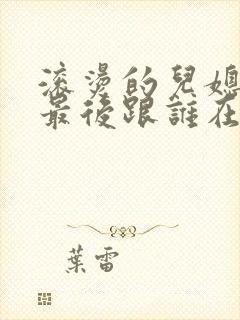 滚燙的兒媳
最後跟誰在
葉雷